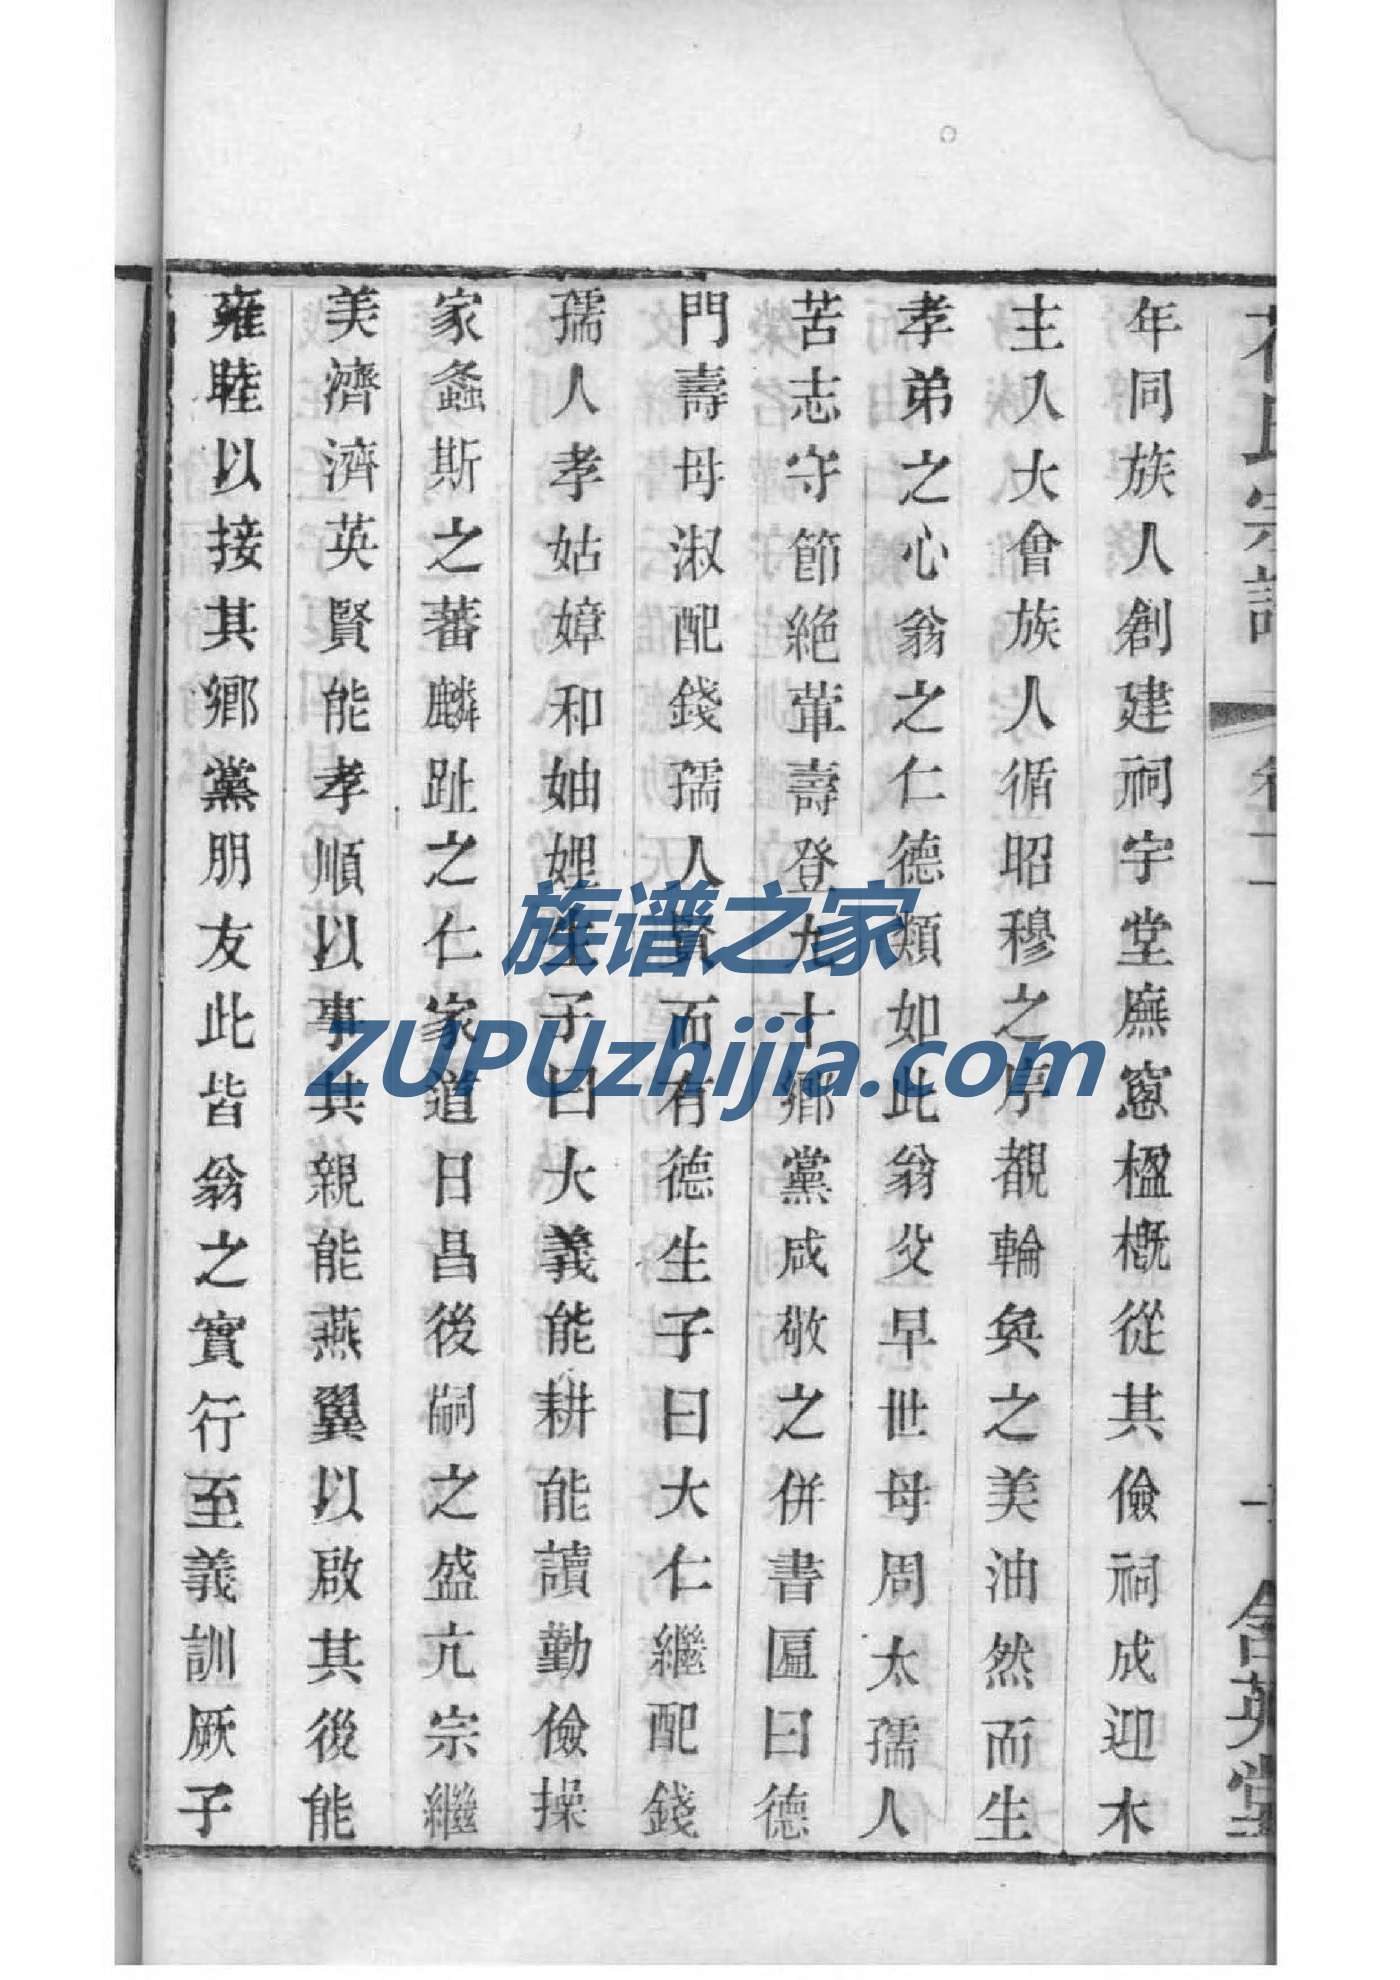 花氏宗譜
卷十一
含英堂
年同族人創建祠宇堂廡窻楹槪從其儉祠成迎木
主入大會族人循昭穆之序覩輪奐之美油然而生
孝弟之心翁之仁德類如此翁父早世母周太孺人
苦志守節絶葷壽登九十鄉黨咸敬之併書匾曰德
門壽母淑配錢孺人賢而有德生子曰大仁繼配錢
孺人孝姑嫜和妯娌生子曰大義能耕能讀勤儉操
家螽斯之蕃麟趾之仁家道日昌後嗣之盛亢宗繼
美濟濟英賢能孝順以事其親能燕翼以啟其後能
雍睦以接其鄉黨朋友此皆翁之實行至義訓厥子
族谱之家
ZUPUzhijia.com